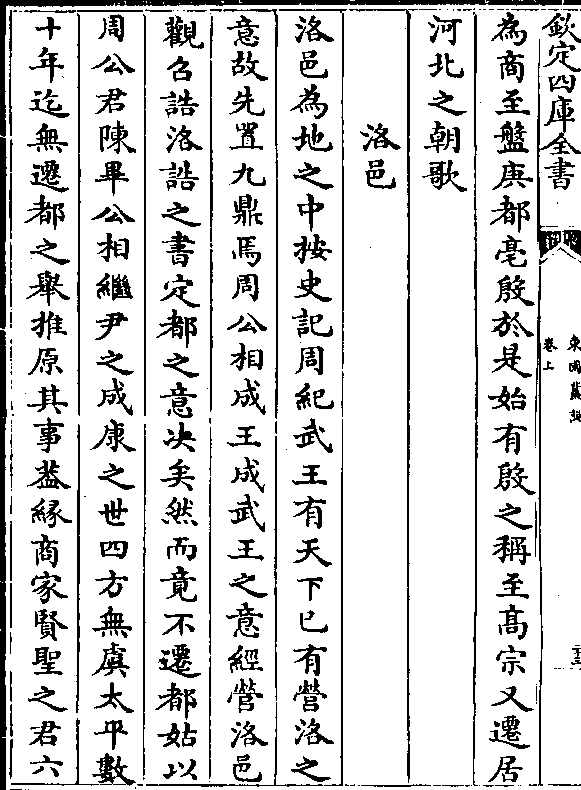 欽定四庫全書
卷上
為商至盤庚都亳殷於是始有殷之稱至髙宗又遷居
河北之朝歌
洛邑
洛邑為地之中按史記周紀武王有天下已有營洛之
意故先置九鼎焉周公相成王成武王之意經營洛邑
觀召誥洛誥之書定都之意决矣然而竟不遷都姑以
周公君陳畢公相繼尹之成康之世四方無虞太平數
十年迄無遷都之舉推原其事葢緣商家賢聖之君六